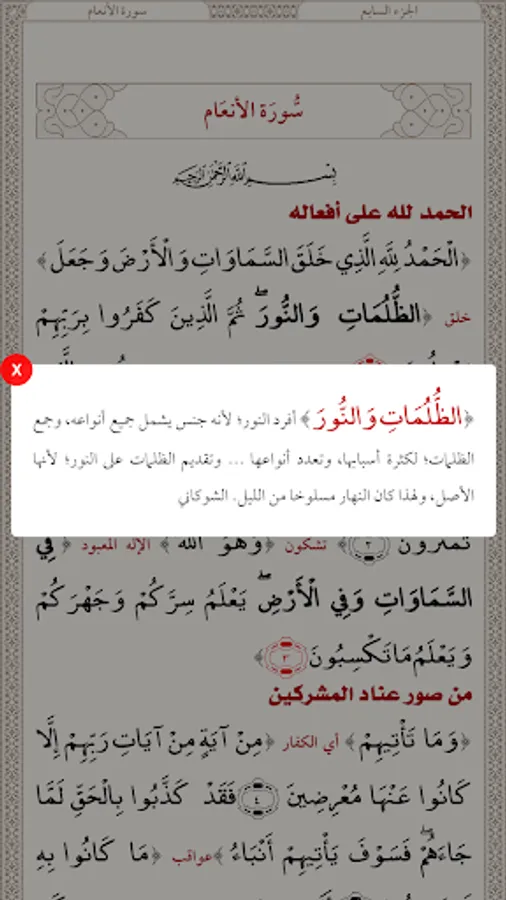 سورة الأنعام
الجزء السابع
سُّورَة الأنعَام
بِسْمِ اللَّهِ الرَّحْمَٰنِ الرَّحِيمِ
الحمد لله على أفعاله
﴿الْحَمْدُ لِلَّهِ الَّذِي خَلَقَ السَّمَاوَاتِ وَالْأَرْضَ وَجَعَلَ﴾
خلق ﴿الظُّلُمَاتِ وَالنُّورَ ۖ ثُمَّ الَّذِينَ كَفَرُوا بِرَبِّهِمْ
X
﴿الظُّلُمَاتِ وَالنُّورَ﴾ أفرد النور؛ لأنه جنس يشمل جميع أنواعه، وجمع
الظلمات؛ لكثرة أسبابها، وتعدد أنواعها ... وتقديم الظلمات على النور؛ لأنها
الأصل، ولهذا كان النهار مسلوخا من الليل. الشوكاني
تمترون ٢﴾ تشكون ﴿وَهُوَ الله﴾ الإله المعبود ﴿فِي
السَّمَاوَاتِ وَفِي الْأَرْضِ ۖ يَعْلَمُ سِرَّكُمْ وَجَهْرَكُمْ
وَيَعْلَمُ مَا تَكْسِبُونَ ٣﴾
من صور عناد المشركين
﴿وَمَا تَأْتِيهِمْ﴾ أي الكفار ﴿مِنْ آيَةٍ مِنْ آيَاتِ رَبِّهِمْ إِلَّا
كَانُوا عَنْهَا مُعْرِضِينَ ٤ فَقَدْ كَذَّبُوا بِالْحَقِّ لَمَّا
جَاءَهُمْ ۖ فَسَوْفَ يَأْتِيهِمْ أَنْبَاءُ﴾ عواقب ﴿مَا كَانُوا بِهِ